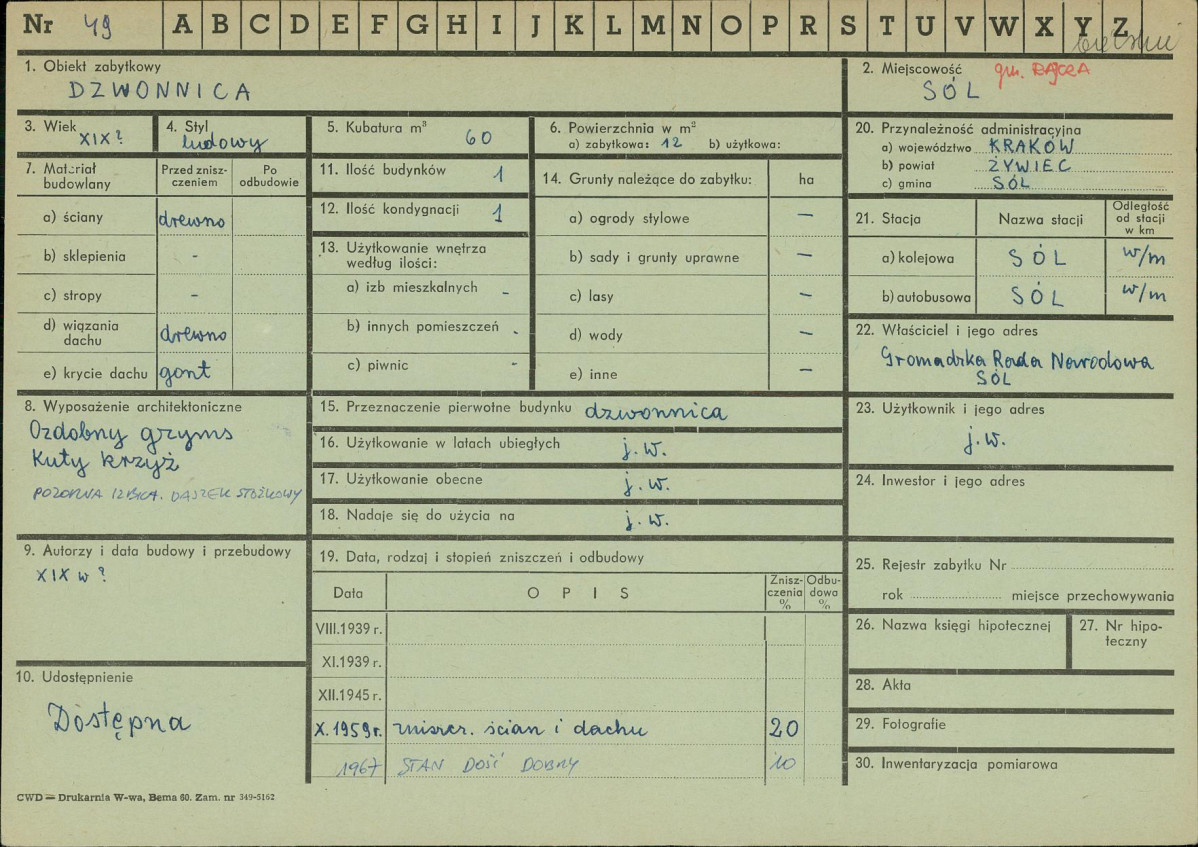 Nr 49 A B C D E F G H I J K L M N O P R S T U V W X Y Z
bielskie
1. Obiekt zabytkowy
DZWONNICA
2. Miejscowość gm. RAJCZA
SÓL
3. Wiek
XIX?
4. Styl
ludowy
5. Kubatura m³
60
6. Powierzchnia w m²
a) zabytkowa: 12 b) użytkowa:
7. Materiał budowlany
Przed zniszczeniem
Po odbudowie
a) ściany drewno
b) sklepienia -
c) stropy -
d) wiązania dachu drewno
e) krycie dachu gont
8. Wyposażenie architektoniczne
Ozdobny gzyms
Kuty krzyż
POZORNA IZBICA. DASZEK STOŻKOWY
9. Autorzy i data budowy i przebudowy
XIX w ?
10. Udostępnienie
Dostępna
11. Ilość budynków 1
12. Ilość kondygnacji 1
13. Użytkowanie wnętrza
według ilości:
a) izb mieszkalnych -
b) innych pomieszczeń -
c) piwnic -
14. Grunty należące do zabytku: ha
a) ogrody stylowe —
b) sady i grunty uprawne —
c) lasy —
d) wody —
e) inne —
15. Przeznaczenie pierwotne budynku dzwonnica
16. Użytkowanie w latach ubiegłych j. w.
17. Użytkowanie obecne j. w.
18. Nadaje się do użycia na j. w.
19. Data, rodzaj i stopień zniszczeń i odbudowy
Data
OPIS
Zniszczenia %
Odbudowa %
VIII.1939 r.
XI.1939 r.
XII.1945 r.
X. 1959r. zniszcz. ścian i dachu 20
1967 STAN DOŚĆ DOBRY 10
20. Przynależność administracyjna
a) województwo KRAKÓW
b) powiat ŻYWIEC
c) gmina SÓL
21. Stacja
Nazwa stacji
Odległość od stacji w km
a) kolejowa SÓL w/m
b) autobusowa SÓL w/m
22. Właściciel i jego adres
Gromadzka Rada Narodowa
SÓL
23. Użytkownik i jego adres
j. w.
24. Inwestor i jego adres
25. Rejestr zabytku Nr
rok miejsce przechowywania
26. Nazwa księgi hipotecznej
27. Nr hipoteczny
28. Akta
29. Fotografie
30. Inwentaryzacja pomiarowa
CWD — Drukarnia W-wa, Bema 60. Zam. nr 349-5162